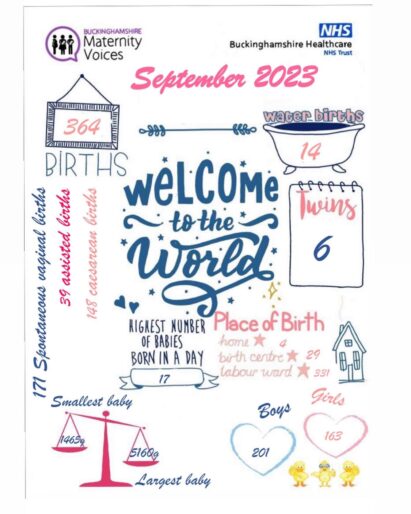 BUCKINGHAMSHIRE
Maternity
Voices
NHS
Buckinghamshire Healthcare
NHS Trust
September 2023
364
BIRTHS
water births
14
171 Spontaneous vaginal births
39 assisted births
148 caesarean births
WELCOME
to the
World
Twins
6
HIGHEST NUMBER
OF BABIES
BORN IN A DAY
17
Place of Birth
home 4
birth centre 29
labour ward 331
Smallest baby
1463g
5160g
Largest baby
Boys
201
Girls
163